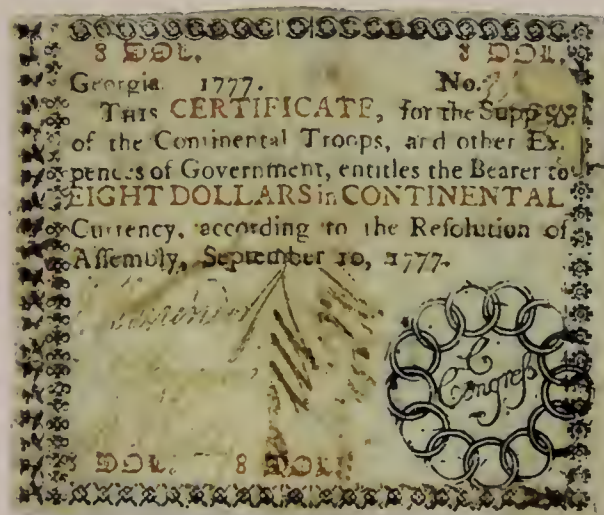 8 DOL. 8 DOL.
Georgia. 1777. No.
THIS CERTIFICATE, for the Support
of the Continental Troops, and other Ex-
pences of Government, entitles the Bearer to
EIGHT DOLLARS in CONTINENTAL
Currency, according to the Reſolution of
Aſſembly, September 10, 1777.
C
Congreſs
8 DOL. 8 DOL.